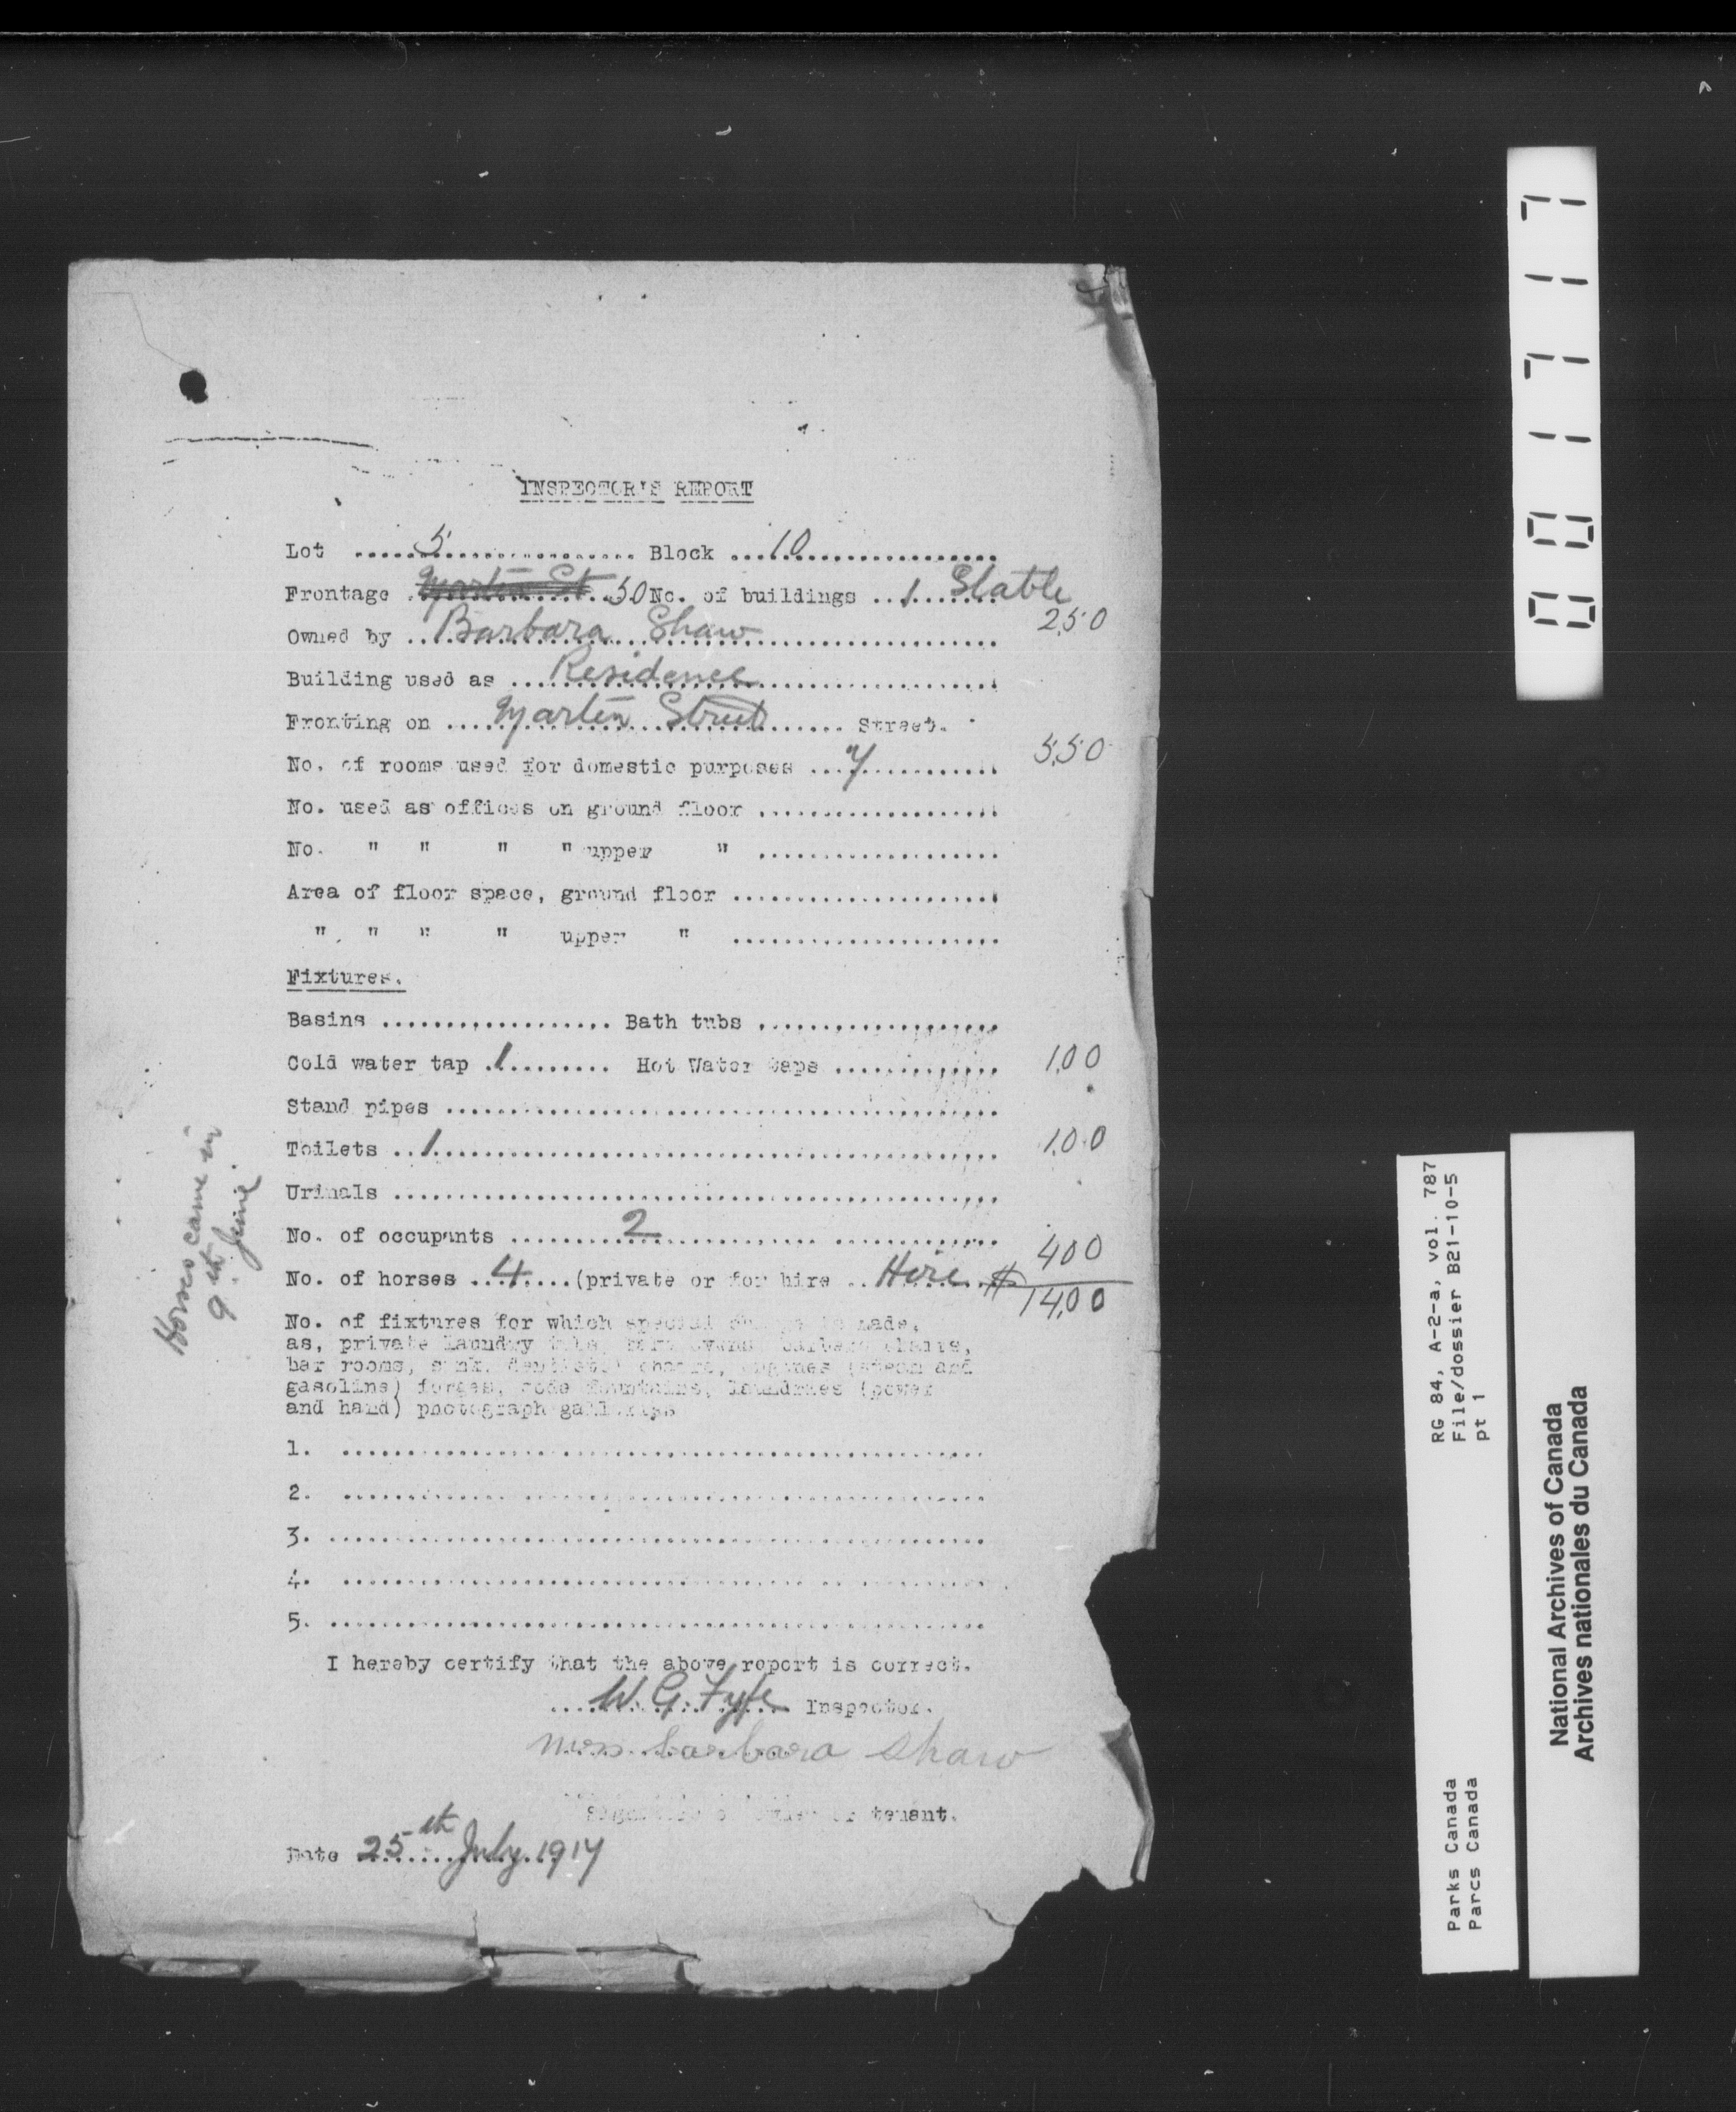 INSPECTOR'S REPORT
Lot ....5.................... Block ...10..................
Frontage Marten St 50 No. of buildings ..1....... Stable
250
Owned by ..Barbara Shaw..........................
Building used as ....Residence........................
Fronting on .....Marten Street....... Street.
No. of rooms used for domestic purposes ...7............ 550
No. used as offices on ground floor ...................
No. " " " " upper " ...................
Area of floor space, ground floor .....................
" " " " upper " .....................
Fixtures.
Basins .................. Bath tubs ...................
Cold water tap .1........ Hot Water taps ............. 100
Stand pipes ...........................................
Toilets ..1............................................ 100
Urinals ...............................................
No. of occupants .........2............................ 400
No. of horses ..4.....(private or for hire ..Hire.... $ 14.00
No. of fixtures for which special is made,
as, private laundry chairs,
bar rooms, chairs, engines (steam and
gasoline) forges, soda fountains, laundries (power
and hand) photograph galleries
1. ..................................................
2. ..................................................
3. ..................................................
4. ..................................................
5. ..................................................
I hereby certify that the above report is correct.
....W. G. Fyfe Inspector.
Mrs. barbara Shaw
Signature of owner or tenant.
Date 25th July 1917
Horses came in
9th June
001717
RG 84, A-2-a, vol. 787
File/dossier B21-10-5
pt 1
Parks Canada
Parcs Canada
National Archives of Canada
Archives nationales du Canada